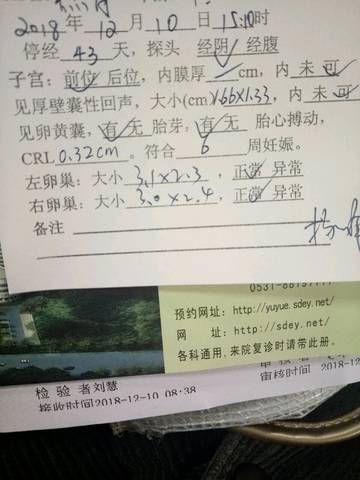 2018年12月10日15:10时
停经43天，探头 经阴 经腹
子宫：前位 后位，内膜厚 cm，内 未 可
见厚壁囊性回声，大小(cm)1.66×1.33，内 未 可
见卵黄囊，有 无 胎芽，有 无 胎心搏动，
CRL 0.32cm。符合 6 周妊娠。
左卵巢：大小 3.1×2.3，正常 异常
右卵巢：大小 3.0×2.4，正常 异常
备注
预约网址：http://yuyue.sdey.net/
网 址：http://sdey.net/
各科通用，来院复诊时请带此册。
检 验 者刘慧
接收时间2018-12-10 08:38
审核时间 2018-12